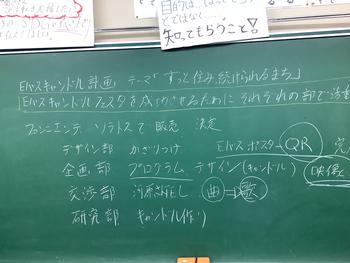 目的は、
とではなく、
知ってもらうこと!
Eバスキャンドル計画 テーマ「ずっと住み続けられるまち」
Eバスキャンドルフェスタを成功させるためにそれぞれの部で活動
販売 決定
デザイン部 かざりつけ Eバスポスター QR 完
企画部 プログラム デザイン(キャンドル) 映像
交渉部 曲=歌
研究部 キャンドル作り